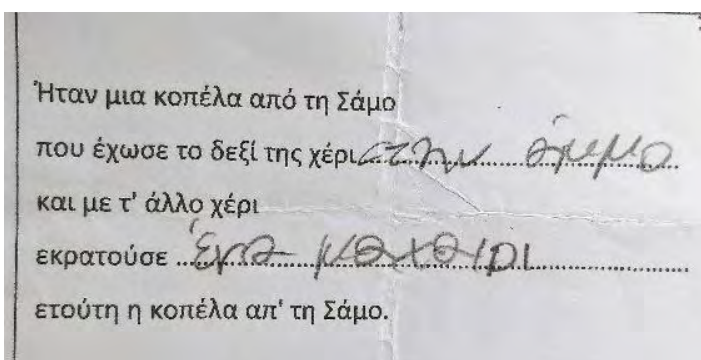 Ήταν μια κοπέλα από τη Σάμο
που έχωσε το δεξί της χέρι στην άμμο
και με τ' άλλο χέρι
εκρατούσε ένα μαχαιρι
ετούτη η κοπέλα απ' τη Σάμο.